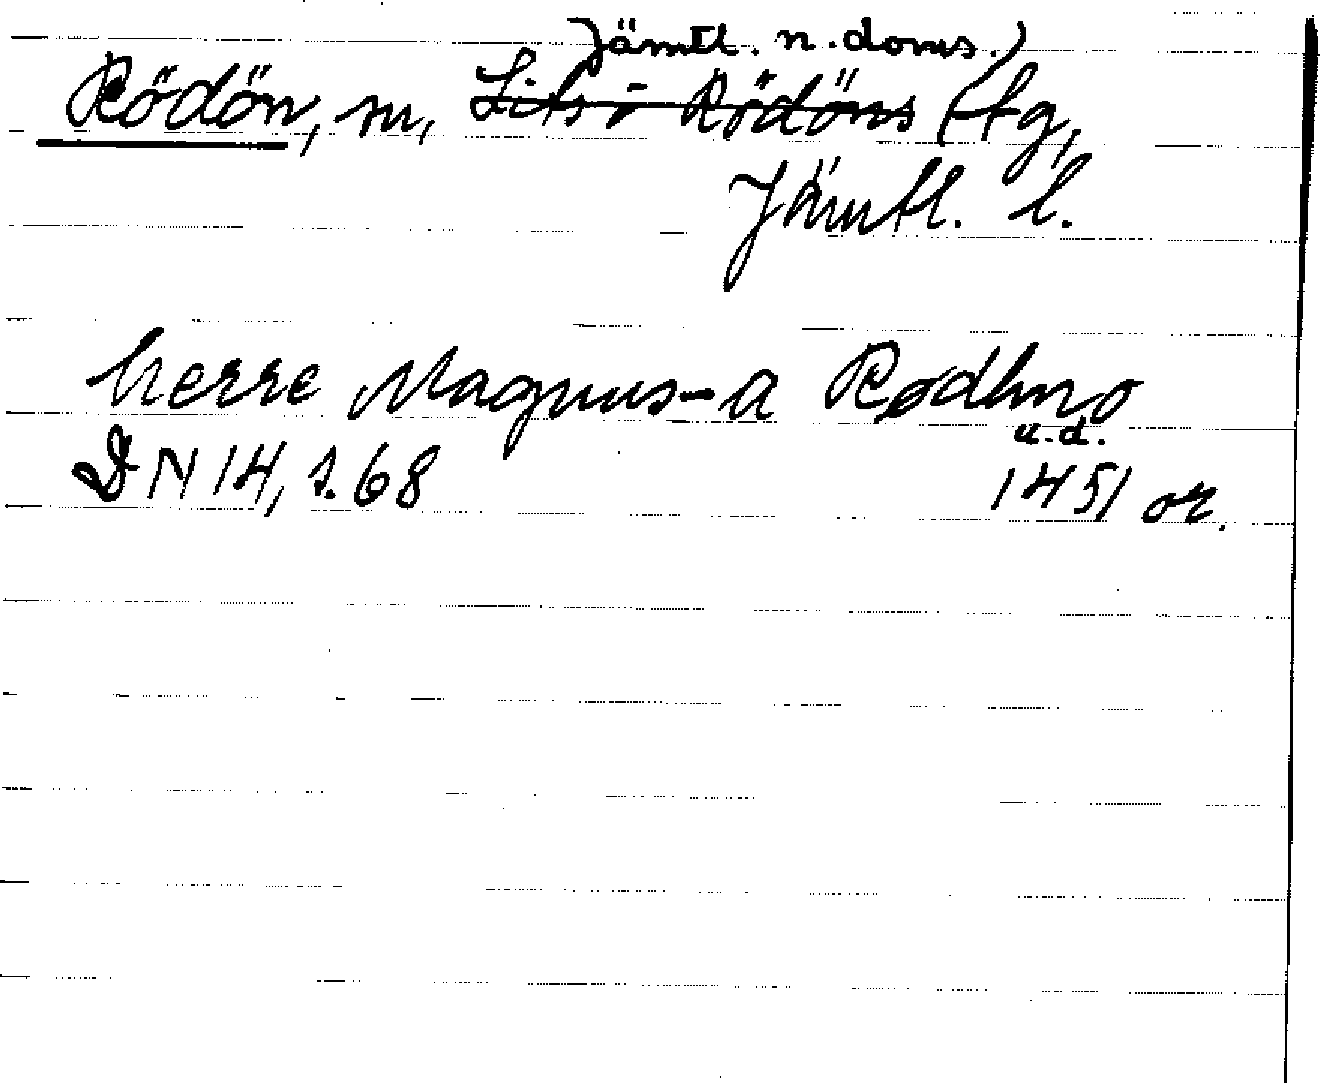 Jämtl. n. doms.)
Rödön, sn, Lits o Rödöns tg,
Jämtl. l.
herre Magnus a Rødhno
u.d.
DN 14, s. 68 1451 or.